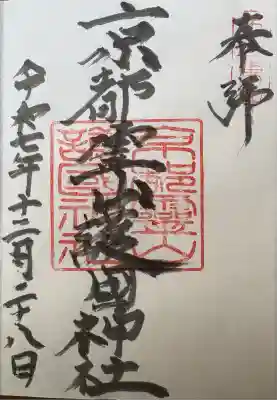 奉拝
京都霊山護國神社
令和七年十二月二十八日
京都靈山
護國神社